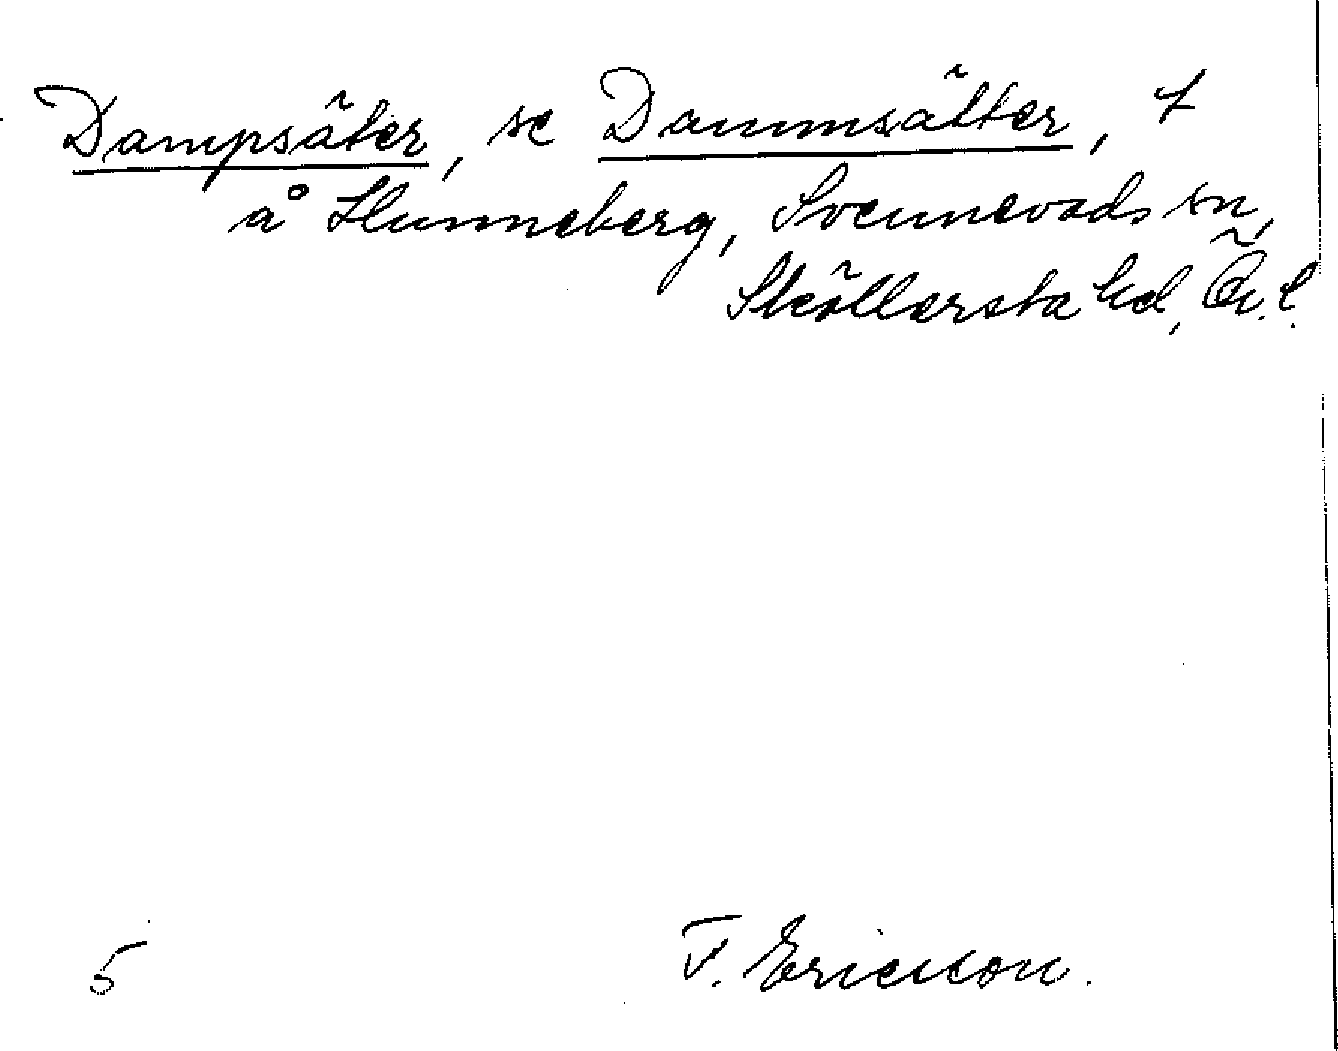 Dampsäter, se Dammsätter, t
å Hunneberg, Svennevads sn,
Sköllersta hd, Ör. l.
5 F. Ericson.